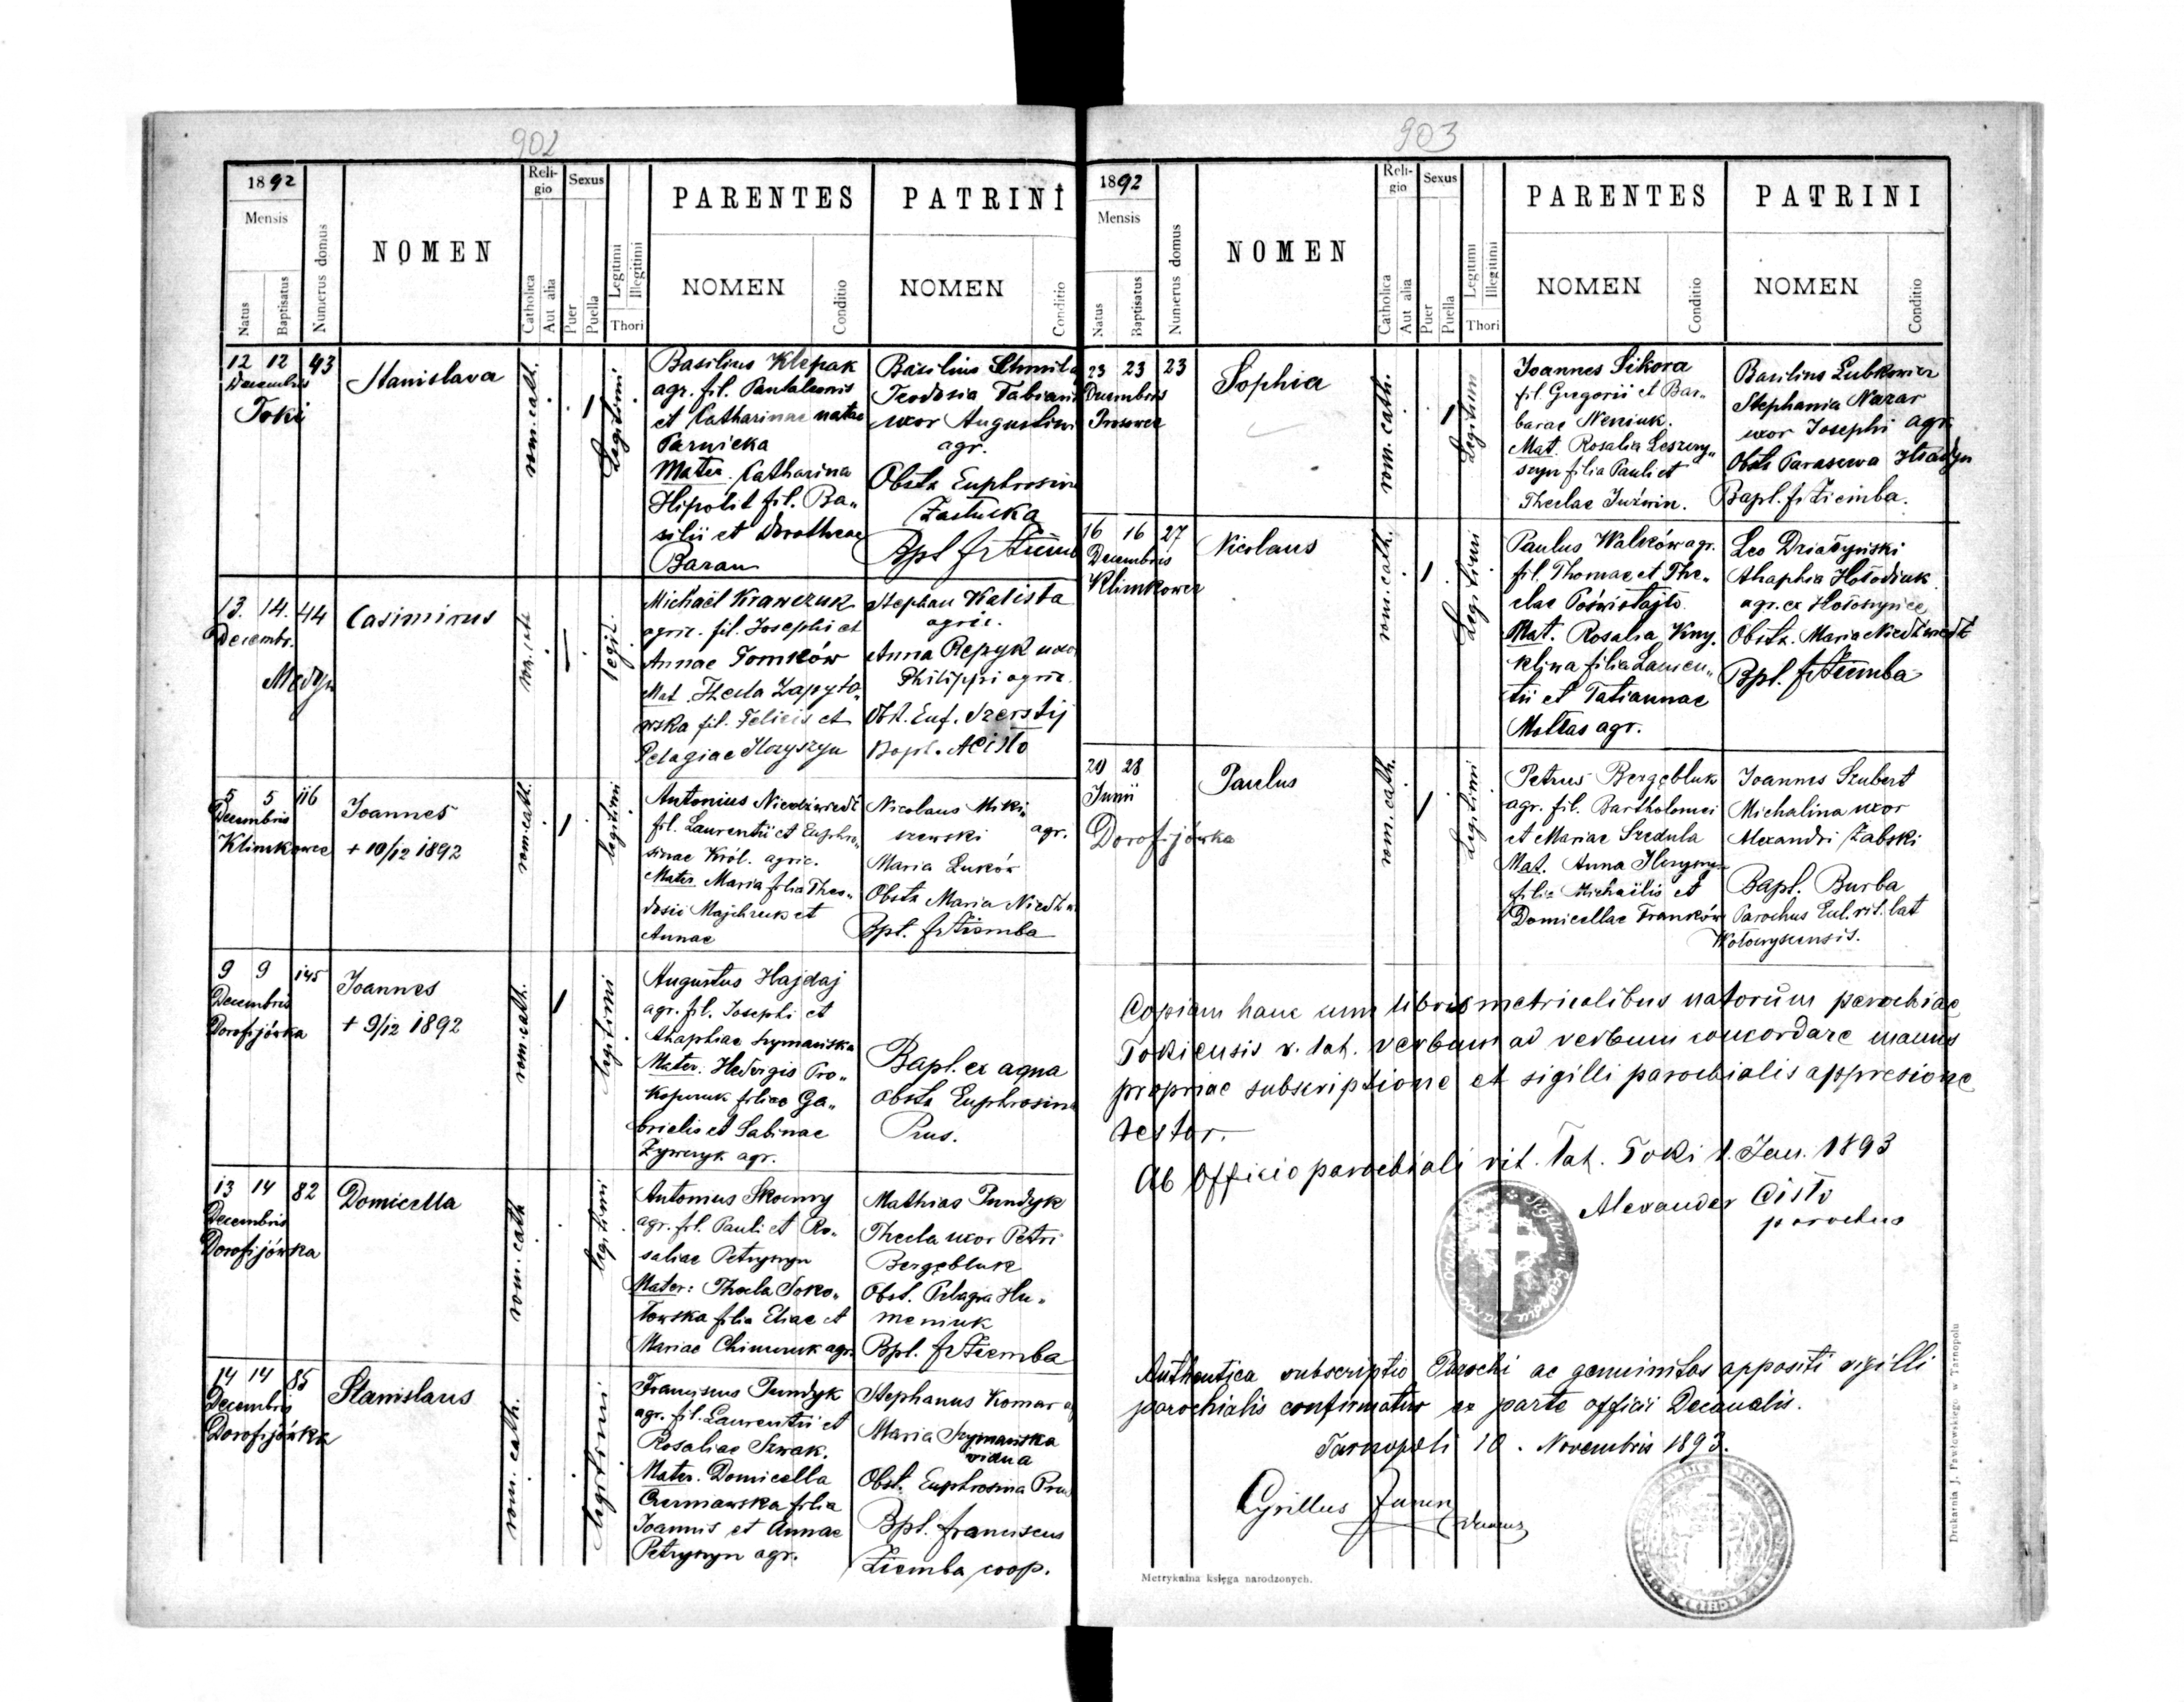 902
1892
Mensis
Natus
Baptisatus
Numerus domus
NOMEN
Reli-
gio
Catholica
Aut alia
Sexus
Puer
Puella
Legitimi
Illegitimi
Thori
PARENTES
NOMEN
Conditio
PATRINI
NOMEN
Conditio
12 12 93
Decembris
Toki
Stanislava
rom. cath.
1
Legitimi
Basilius Klepak
agr. fil. Pantaleonis
et Catharinae natae
Tarnicka
Mater. Catharina
Hipolit fil. Ba„
silii et Dorotheae
Baran
Basilius
Teodosia
uxor Augustini
agr.
Obstx Euphrosina
Bpl. fr
13. 14. 44
Decembr.
Casimirus
legit.
Michaël Krawczuk
agric. fil. Josephi et
Annae Tomków
Mat. Thecla Zapyto„
wska fil. Felicis et
Pelagiae
Stephan Kalista
agric.
Anna Repyk uxo
Philippi agric.
Obst. Euf. Szerstij
Bapt. A Cisto
5 5 116
Decembris
Klimkowce
Joannes
+ 10/12 1892
rom. cath.
1
legitimi
Antonius Niedźwiedź
fil. Laurentii et Euphro„
sinae Król. agric.
Mater. Maria filia Theo„
dosii Majchruk et
Annae
Nicolaus Miki„
szewski agr.
Maria Luków
Obstx Maria Niedźw
Bpt. fr Ziemba
9 9 145
Decembris
Dorofijówka
Joannes
+ 9/12 1892
rom. cath.
1
legitimi
Augustus Hajdaj
agr. fil. Josephi et
Ahaphiae Szymańska
Mater. Hedvigis Pro„
filiae Ga„
brielis et Sabinae
agr.
Bapt. ex aqua
obstx Euphrosina
Prus.
13 14 82
Decembris
Dorofijówka
Domicella
rom. cath
legitimi
Antonius Skoczny
agr. fil. Pauli et Ro„
saliae Petryszyn
Mater: Thecla Soko„
łowska filia Eliae et
Mariae agr.
Mathias Pundyk
Thecla uxor Petri
Bergębluk
Obst. Pelagia Hu„
meniuk
Bpl. fr Ziemba
14 14 85
Decembris
Dorofijówka
Stanislaus
rom. cath.
legitimi
Franciscus Pundyk
agr. fil. Laurentii et
Rosaliae Szwak.
Mater. Domicella
Czerniawska filia
Joannis et Annae
Petryszyn agr.
Stephanus Komar
Maria Szymańska
vidua
Obst. Euphrosina Prus
Bpt. Franciscus
Ziemba coop.
903
1892
Mensis
Natus
Baptisatus
Numerus domus
NOMEN
Reli-
gio
Catholica
Aut alia
Sexus
Puer
Puella
Legitimi
Illegitimi
Thori
PARENTES
NOMEN
Conditio
PATRINI
NOMEN
Conditio
23 23 23
Decembris
Prosowce
Sophia
rom. cath.
1
Legitimi
Joannes Sikora
fil. Gregorii et Bar„
barae
Mat. Rosalia Leszczy„
szyn filia Pauli et
Theclae Juźwin.
Basilius Lubkowicz
Stephania Nazar
uxor Josephi agr.
Obstx Parascewa
Bapt. fr Ziemba.
16 16 27
Decembris
Klimkowce
Nicolaus
rom. cath.
1
Legitimi
Paulus Walków agr.
fil. Thomae et The„
clae Poświstajło
Mat. Rosalia Kny„
kliwa filia Lauren„
tii et Tatiannae
Moltas agr.
Leo Działyński
Ahaphia Hołodiuk
agr. ex
Obstx. Maria Niedźwiedź
Bpt. fr Ziemba
28
Junii
Dorofijówka
Paulus
rom. cath.
1
Legitimi
Petrus Bergębluk
agr. fil. Bartholomei
et Mariae Szedula
Mat. Anna
filia Michaëlis et
Domicellae Franków
Joannes Szubert
Michalina uxor
Alexandri Żabski
Bapt. Burba
Parochus Eul. rit. lat
Wołoczyscensis.
Copiam hanc cum libris metricalibus natorum parochiae
Tokiensis r. lat. verbum ad verbum concordare manus
propriae subscriptione et sigilli parochialis appresione
testor.
Ab Officio parochiali rit. lat. Toki 1. Jan. 1893
Alexander Cisto
parochus
Authentica subscriptio Parochi ac genuinitas appositi sigilli
parochialis confirmatur ex parte officii Decanalis.
Tarnopoli 10. Novembris 1893.
Cyrillus
Metrykalna księga narodzonych.
Drukarnia J. Pawłowskiego w Tarnopolu